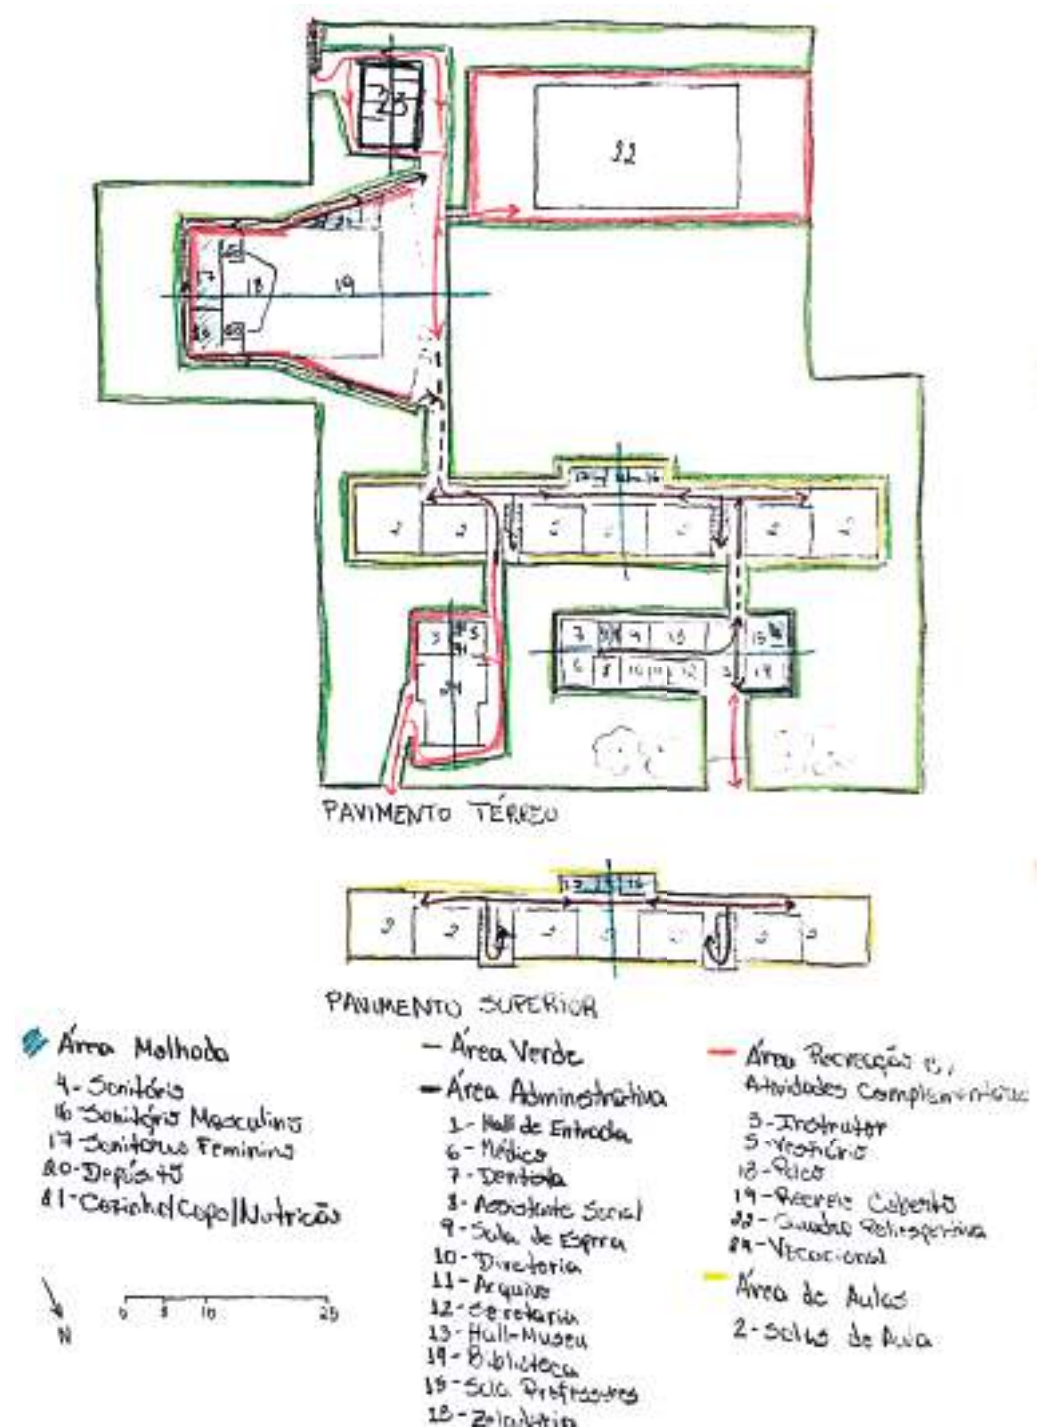 23
22
17
18
19
2
2
2
2
2
7
9
13
15
6
8
10
11
12
14
3
5
PAVIMENTO TÉRREO
17
16
2
2
2
2
2
PAVIMENTO SUPERIOR
Área Molhada
4-Sanitário
16-Sanitário Masculino
17-Sanitários Feminino
20-Depósito
21-Cozinha/Copa/Nutrição
0 5 10 25
N
Área Verde
Área Administrativa
1-Hall de Entrada
6-Médico
7-Dentista
8-Assistente Social
9-Sala de Espera
10-Diretoria
11-Arquivo
12-Secretaria
13-Hall-Museu
14-Biblioteca
15-Sala Professores
Zeladoria
Área Recreação e/
Atividades Complementares
3-Instrutor
5-Vestiário
18-Palco
19-Recreio Coberto
22-Quadra Poliesportiva
24-Vocacional
Área de Aulas
2-Salas de Aula